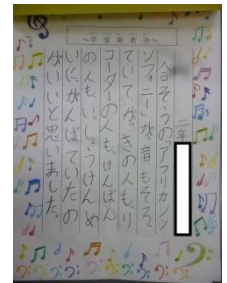 ～学習発表会～
二年
合そうのアフリカンシ
ンフォニーが、音もそろっ
ていて、がっきの人も、リ
コーダーの人も、けんばん
の人も、いっしょうけんめ
いに、がんばっていたの
がいいと思いました。